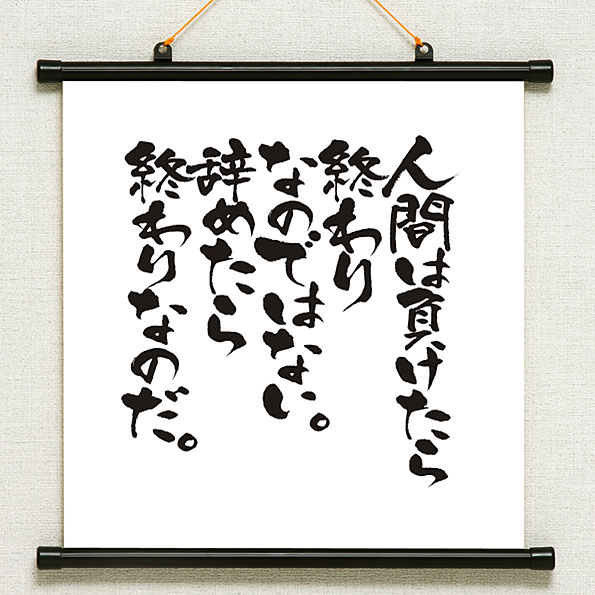 人間は負けたら
終わり
なのではない。
辞めたら
終わりなのだ。